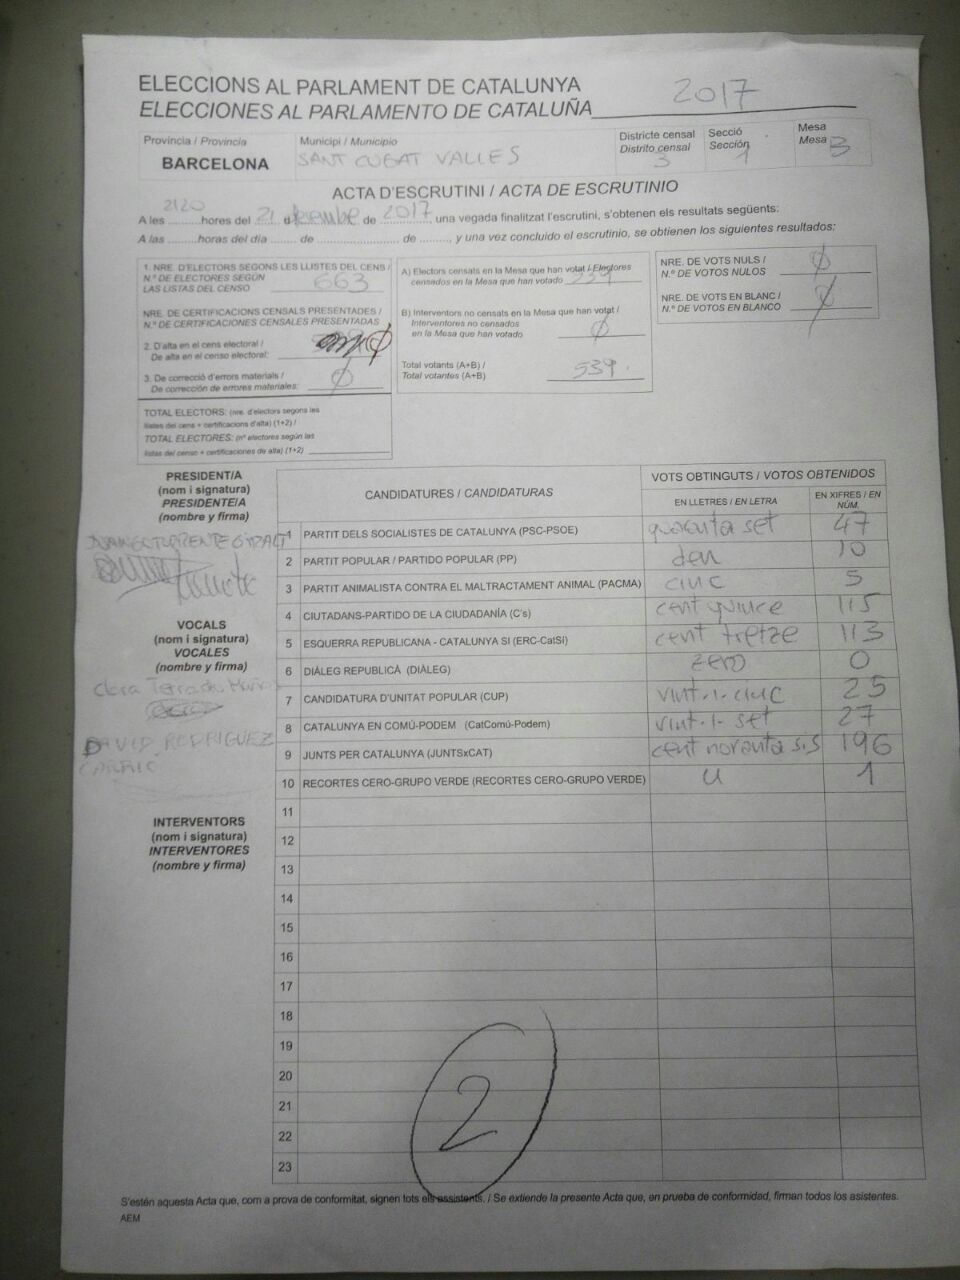 ELECCIONS AL PARLAMENT DE CATALUNYA
ELECCIONES AL PARLAMENTO DE CATALUÑA 2017
Província / Provincia
BARCELONA
Municipi / Municipio
SANT CUGAT VALLES
Districte censal
Distrito censal
3
Secció
Sección
1
Mesa
Mesa B
ACTA D'ESCRUTINI / ACTA DE ESCRUTINIO
A les 2120 hores del 21 de desembre de 2017, una vegada finalitzat l'escrutini, s'obtenen els resultats següents:
A las .......... horas del día ........ de .......................... de ........, y una vez concluido el escrutinio, se obtienen los siguientes resultados:
1. NRE. D'ELECTORS SEGONS LES LLISTES DEL CENS /
N.º DE ELECTORES SEGÚN
LAS LISTAS DEL CENSO 663
NRE. DE CERTIFICACIONS CENSALS PRESENTADES /
N.º DE CERTIFICACIONES CENSALES PRESENTADAS
2. D'alta en el cens electoral /
De alta en el censo electoral: Ø
3. De correcció d'errors materials /
De corrección de errores materiales: Ø
TOTAL ELECTORS: (nre. d'electors segons les
llistes del cens + certificacions d'alta) (1+2) /
TOTAL ELECTORES: (nº electores según las
listas del censo + certificaciones de alta) (1+2)
A) Electors censats en la Mesa que han votat / Electores
censados en la Mesa que han votado 539
B) Interventors no censats en la Mesa que han votat /
Interventores no censados
en la Mesa que han votado Ø
Total votants (A+B) /
Total votantes (A+B) 539.
NRE. DE VOTS NULS /
N.º DE VOTOS NULOS Ø
NRE. DE VOTS EN BLANC /
N.º DE VOTOS EN BLANCO Ø
PRESIDENT/A
(nom i signatura)
PRESIDENTE/A
(nombre y firma)
VOCALS
(nom i signatura)
VOCALES
(nombre y firma)
Clara
DAVID RODRIGUEZ
INTERVENTORS
(nom i signatura)
INTERVENTORES
(nombre y firma)
CANDIDATURES / CANDIDATURAS
VOTS OBTINGUTS / VOTOS OBTENIDOS
EN LLETRES / EN LETRA
EN XIFRES / EN NÚM.
1 PARTIT DELS SOCIALISTES DE CATALUNYA (PSC-PSOE) quaranta set 47
2 PARTIT POPULAR / PARTIDO POPULAR (PP) deu 10
3 PARTIT ANIMALISTA CONTRA EL MALTRACTAMENT ANIMAL (PACMA) cinc 5
4 CIUTADANS-PARTIDO DE LA CIUDADANÍA (C's) cent quince 115
5 ESQUERRA REPUBLICANA - CATALUNYA SI (ERC-CatSí) cent tretze 113
6 DIÀLEG REPUBLICÀ (DIÀLEG) zero 0
7 CANDIDATURA D'UNITAT POPULAR (CUP) vint-i-cinc 25
8 CATALUNYA EN COMÚ-PODEM (CatComú-Podem) vint-i-set 27
9 JUNTS PER CATALUNYA (JUNTSxCAT) cent noranta sis 196
10 RECORTES CERO-GRUPO VERDE (RECORTES CERO-GRUPO VERDE) u 1
11
12
13
14
15
16
17
18
19
20
21
22
23
2
S'estén aquesta Acta que, com a prova de conformitat, signen tots els assistents. / Se extiende la presente Acta que, en prueba de conformidad, firman todos los asistentes.
AEM